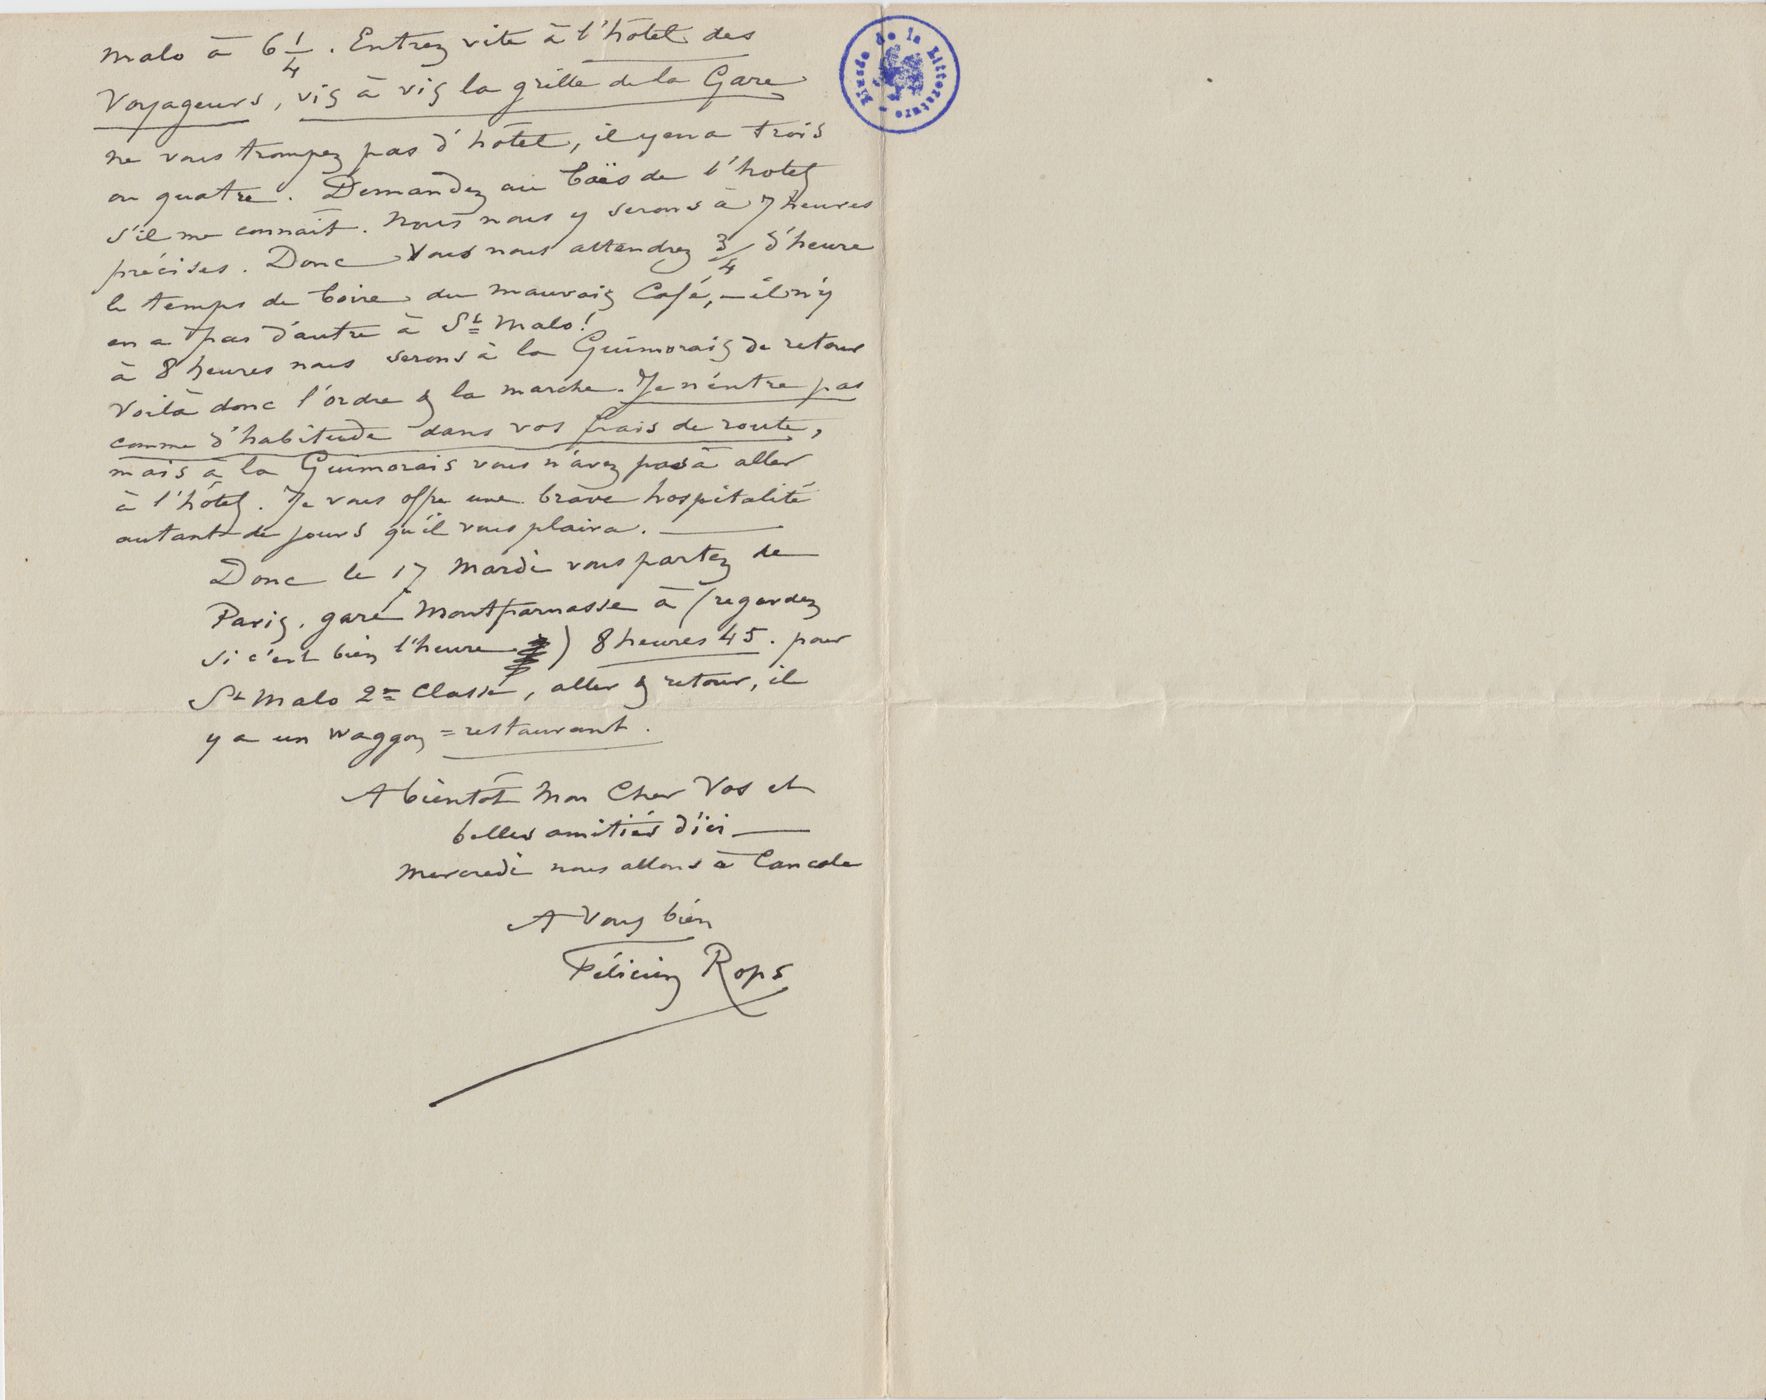 Malo à 6 1/4. Entrez vite à l'hôtel des
Voyageurs, vis à vis la grille de la Gare
ne vous trompez pas d'hôtel, il y en a trois
ou quatre. Demandez au baës de l'hotel
s'il me connait. Nous nous y serons à 7 heures
précises. Donc vous nous attendrez 3/4 d'heure
le temps de boire du mauvais Café, – il n'y
en a pas d'autre à St Malo!
à 8 heures nous serons à la Guimorais de retour
Voilà donc l'ordre & la marche. Je n'entre pas
comme d'habitude dans vos frais de route,
mais à la Guimorais vous n'avez pas à aller
à l'hôtel. Je vous offre une brave hospitalité
autant de jours qu'il vous plaira. —
Donc le 17 Mardi vous partez de
Paris. gare Montparnasse à (regardez
si c'est bien l'heure) 8 heures 45. pour
St Malo 2e Classe, aller & retour, il
y a un waggon=restaurant.
A bientôt Mon Cher Vos et
belles amitiés d'ici —
Mercredi nous allons à Cancale
A Vous bien
Félicien Rops
Musée de la Littérature